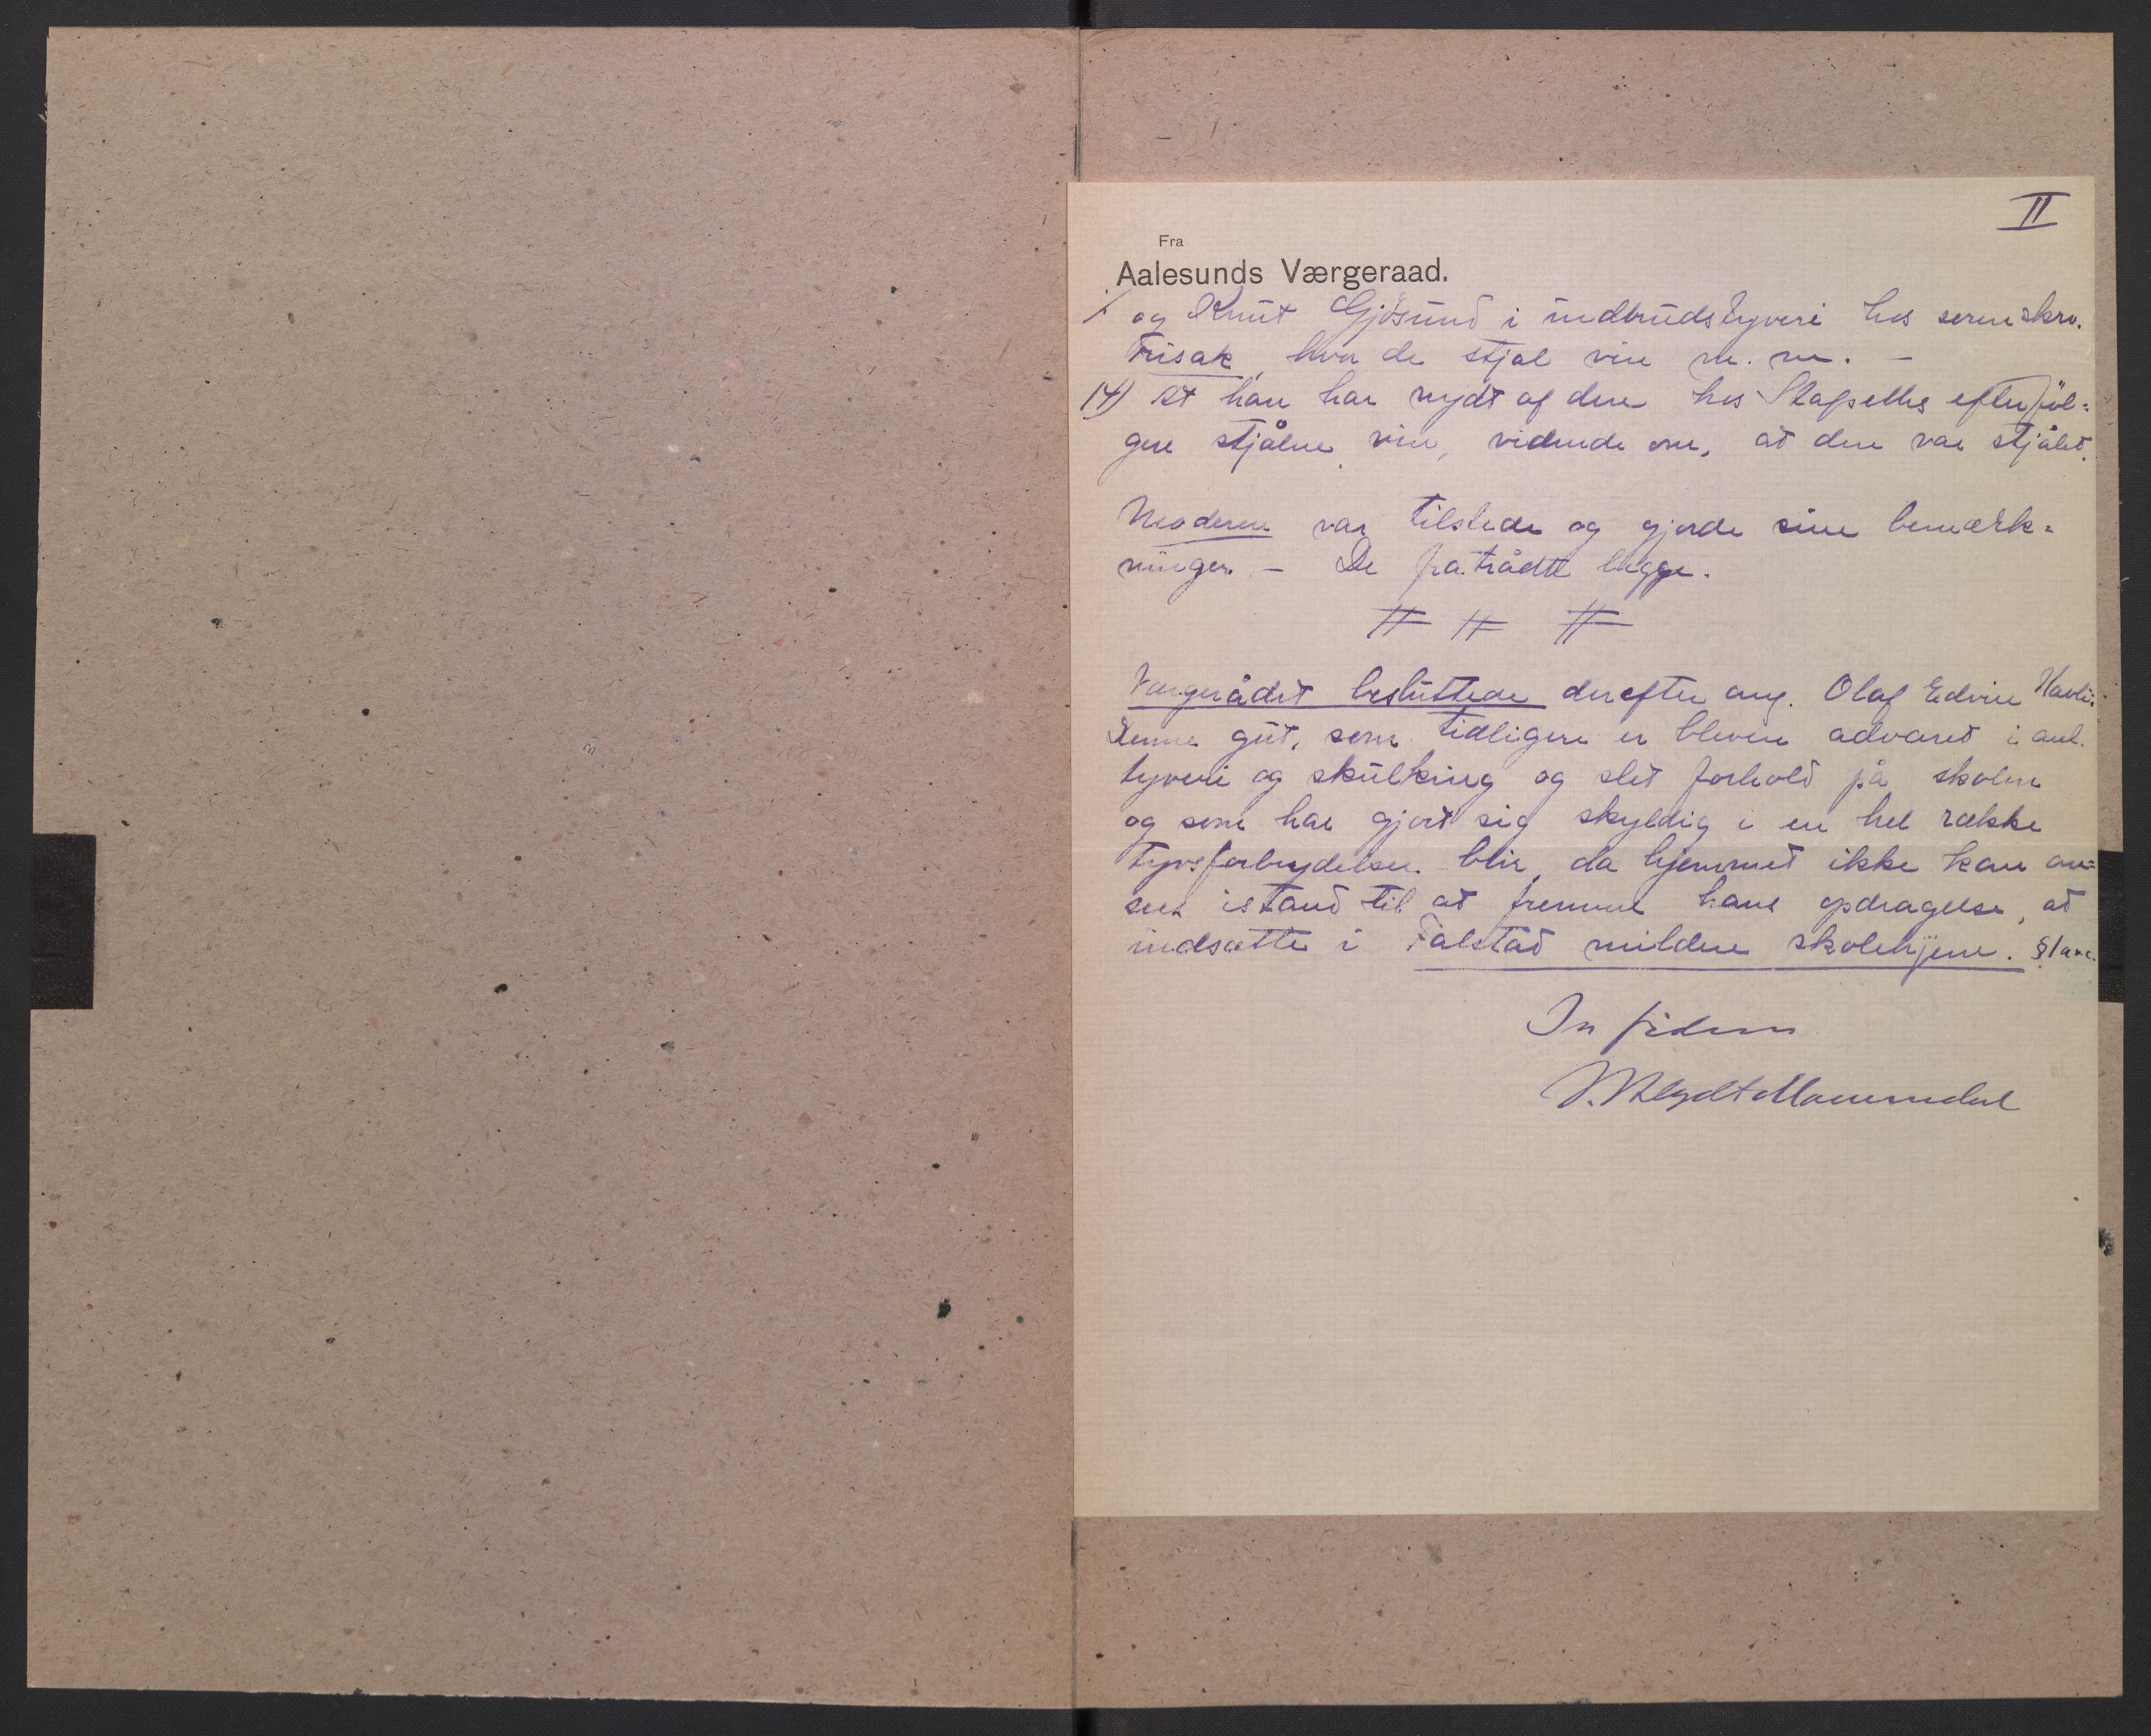 II
Fra
Aalesunds Værgeraad.
og Knut Gjøsund i indbrudstyveri hos sorenskrv.
Frisak, hvor de stjal vin m. m. –
14) At han har nydt af den hos Stafseths efterføl=
gere stjålne vin, vidende om, at den var stjålet.
Moderen var tilstede og gjorde sine bemærk=
ninger. – De fratrådte begge.
Værgerådet besluttede derefter ang. Olaf Edvin Havli:
Denne gut, som tidligere er bleven advaret i anl.
tyveri og skulking og slet forhold på skolen
og som har gjort sig skyldig i en hel række
tyvsforbrydelser blir, da hjemmet ikke kan an=
sees istand til at fremme hans opdragelse, at
indsætte i Falstad mildere skolehjem. § 1 a
In fidem